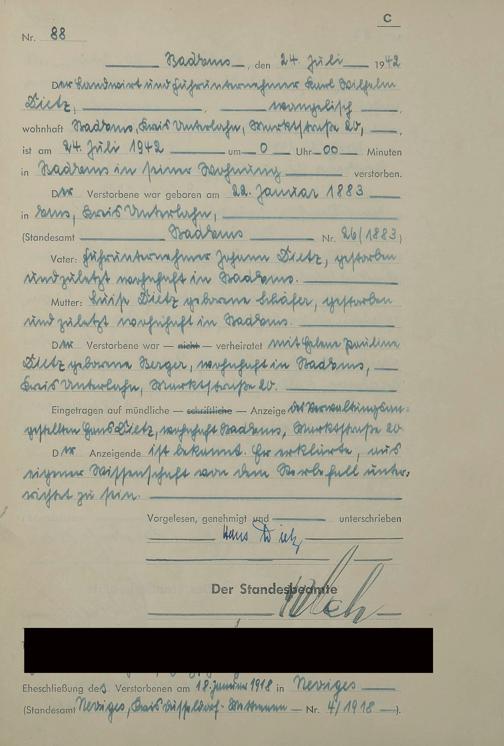 C
Nr. 88
Bad Ems, den 24. Juli 1942
Der Landwirt und Fuhrunternehmer Karl Wilhelm
Dietz, evangelisch,
wohnhaft Bad Ems, Kreis Unterlahn, Marktstraße 20,
ist am 24. Juli 1942 um 0 Uhr 00 Minuten
in Bad Ems in seiner Wohnung verstorben.
Der Verstorbene war geboren am 22. Januar 1883
in Ems, Kreis Unterlahn,
(Standesamt Bad Ems Nr. 26/1883)
Vater: Fuhrunternehmer Johann Dietz, gestorben
und zuletzt wohnhaft in Bad Ems.
Mutter: Luise Dietz geborene Schäfer, gestorben
und zuletzt wohnhaft in Bad Ems.
Der Verstorbene war — nicht — verheiratet mit Helene Pauline
Dietz geborene Berger, wohnhaft in Bad Ems,
Kreis Unterlahn, Marktstraße 20.
Eingetragen auf mündliche — schriftliche — Anzeige des Verwaltungsan-
gestellten Hans Dietz, wohnhaft Bad Ems, Marktstraße 20
Der Anzeigende ist bekannt. Er erklärte, aus
eigener Wissenschaft von dem Sterbefall unter-
richtet zu sein.
Vorgelesen, genehmigt und unterschrieben
Hans Dietz
Der Standesbeamte
Eheschließung des Verstorbenen am 18. Januar 1918 in Neviges
(Standesamt Neviges, Kreis Düsseldorf-Mettmann Nr. 4/1918).